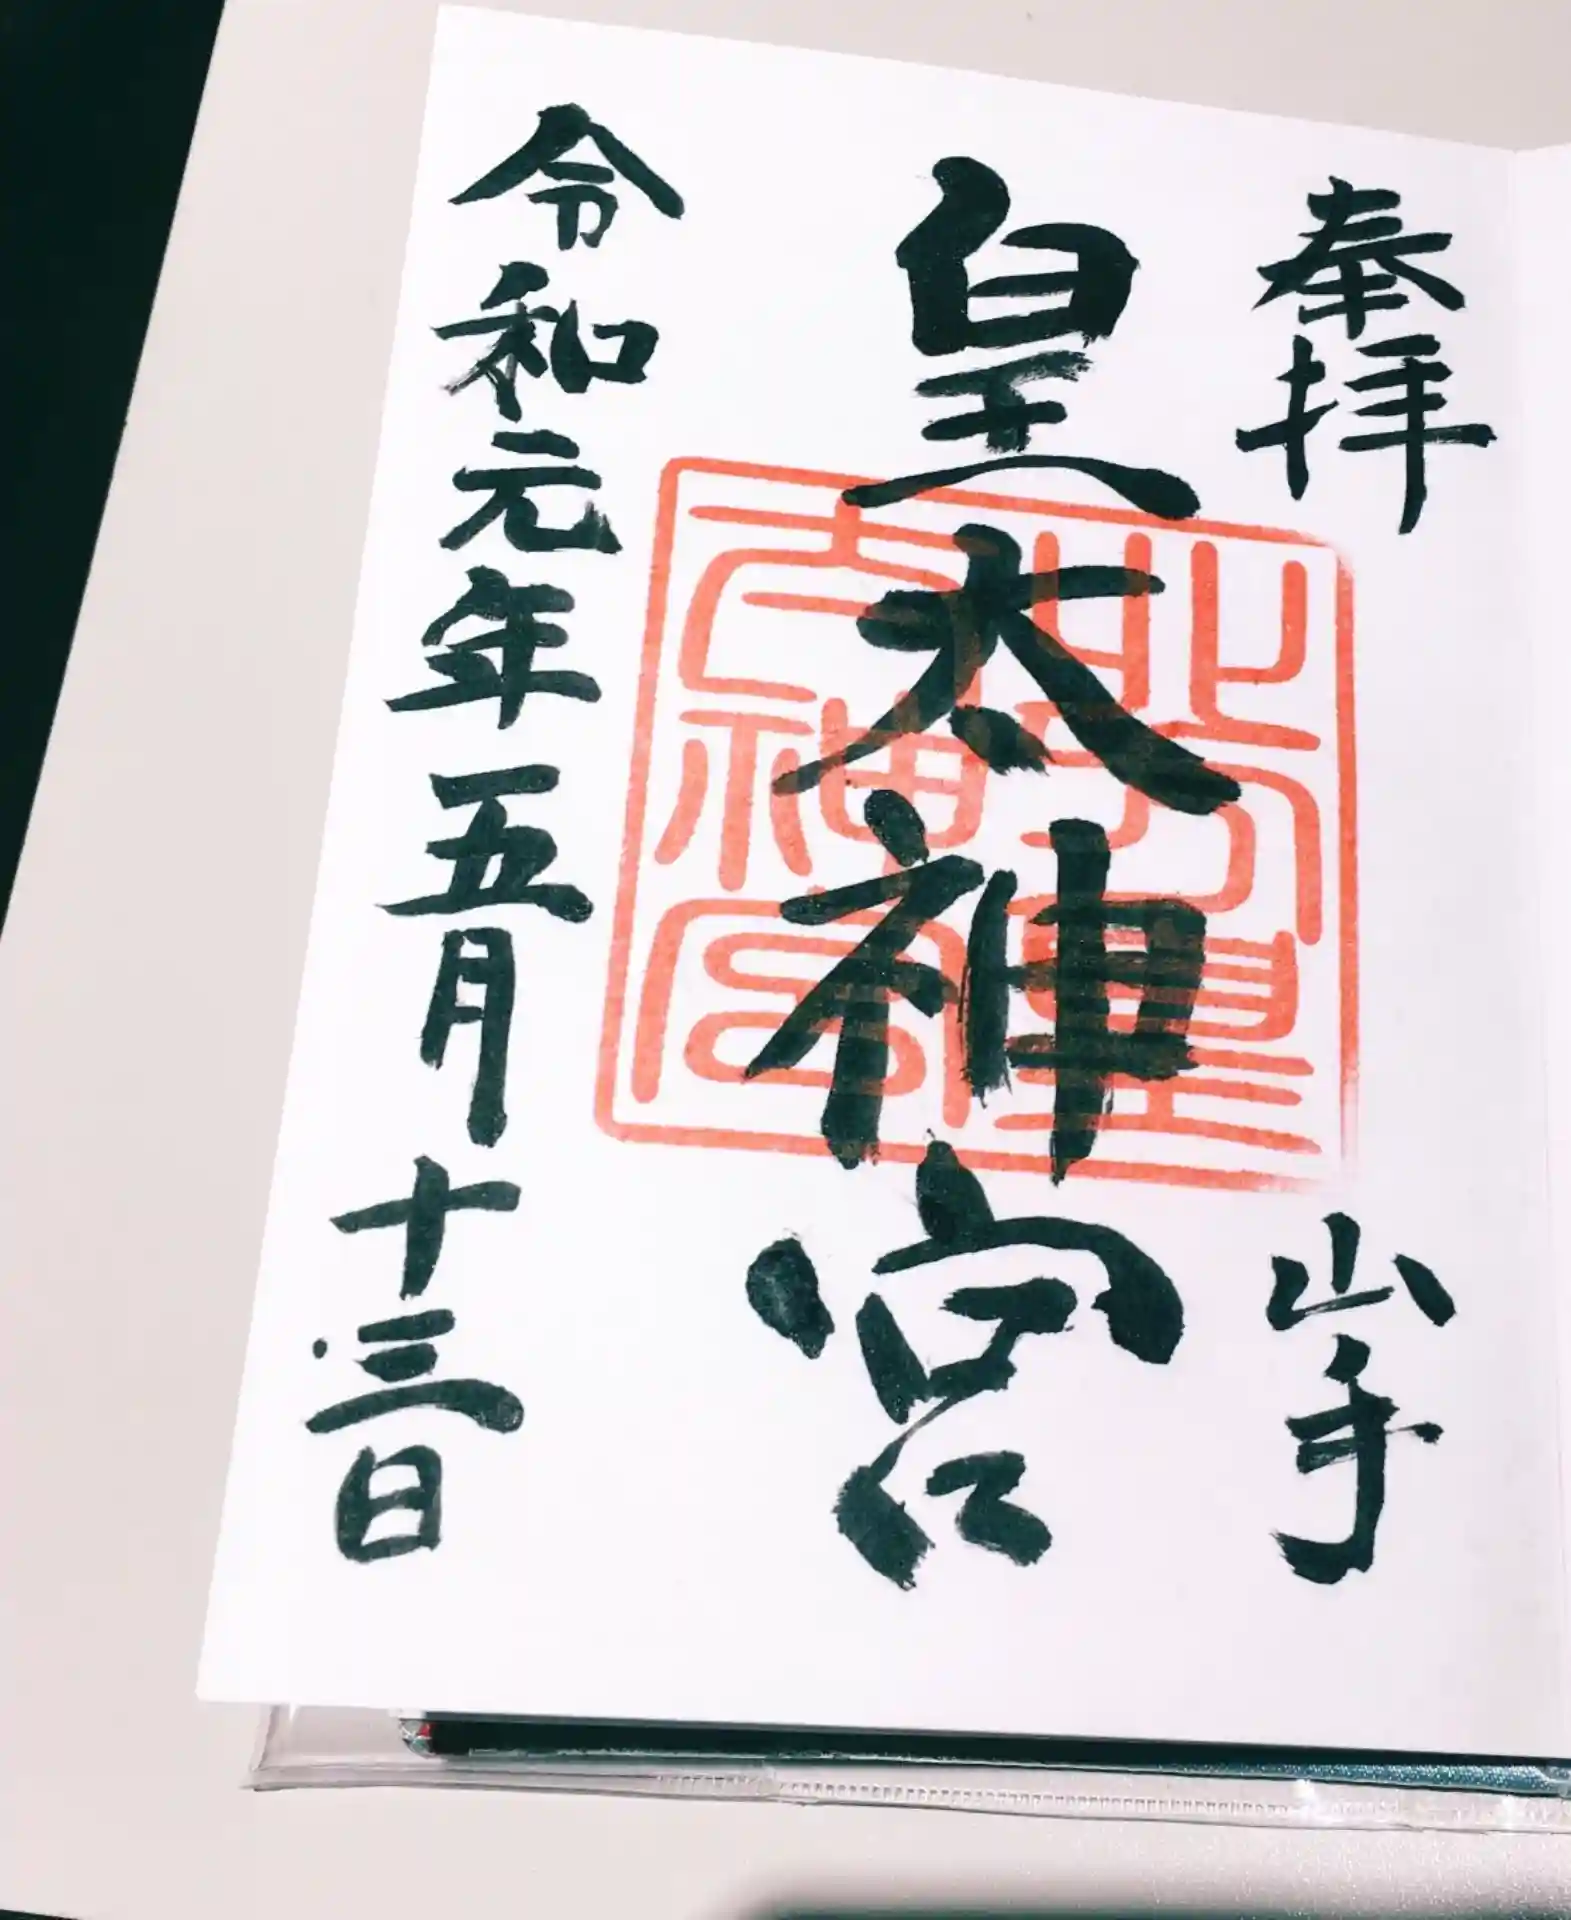 奉拝
山手
皇太神宮
北方皇
大神宮
令和元年五月十三日